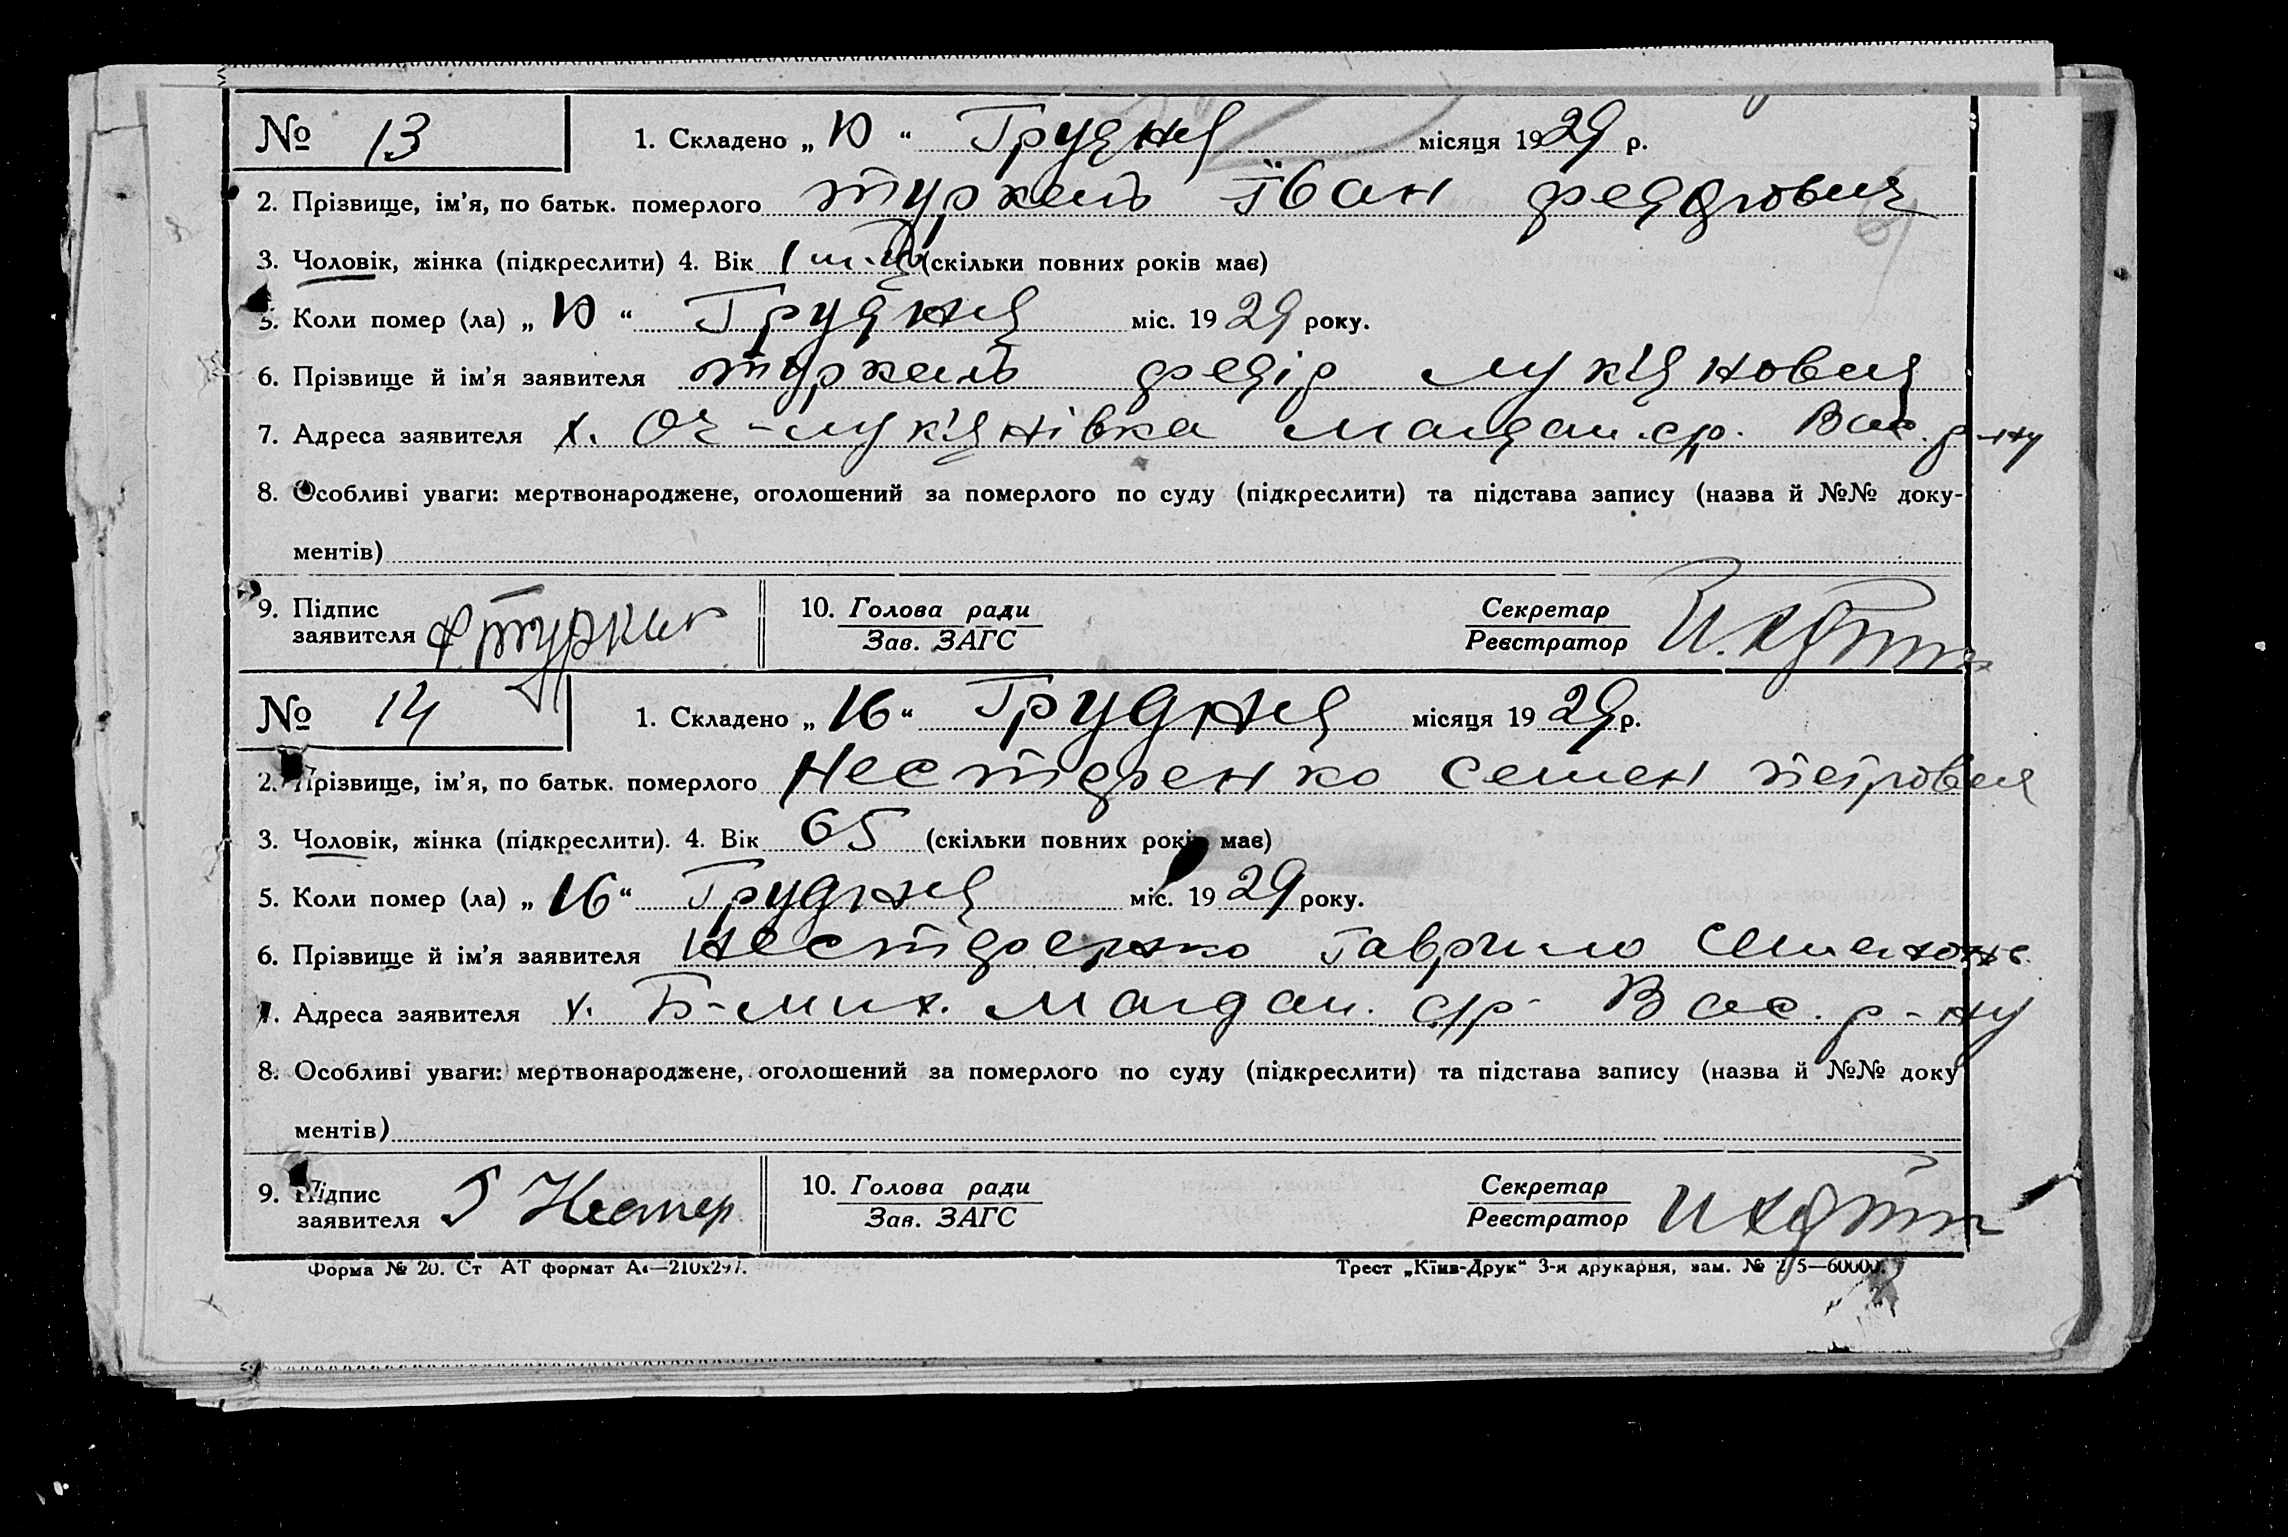 № 13 1. Складено „ 10 “ Грудня місяця 1929 р.
2. Прізвище, ім’я, по батьк. померлого Туркень Іван Федорович
3. Чоловік, жінка (підкреслити) 4. Вік 1 (скільки повних років має)
5. Коли помер (ла) „ 10 “ Грудня міс. 1929 року.
6. Прізвище й ім’я заявителя Туркень Федір Лук’янович
7. Адреса заявителя х. Оч-Лук’янівка Магдал. с/р. Вас. р-ну
8. Особливі уваги: мертвонароджене, оголошений за померлого по суду (підкреслити) та підстава запису (назва й №№ доку-
ментів)
9. Підпис заявителя 10. Голова ради Зав. ЗАГС Секретар Реєстратор
№ 14 1. Складено „ 16 “ Грудня місяця 1929 р.
2. Прізвище, ім’я, по батьк. померлого Нестеренко Семен Петрович
3. Чоловік, жінка (підкреслити). 4. Вік 65 (скільки повних років має)
5. Коли помер (ла) „ 16 “ Грудня міс. 1929 року.
6. Прізвище й ім’я заявителя Нестеренко Гаврило
7. Адреса заявителя х. Б-Мих. Магдал. с/р Вас. р-ну
8. Особливі уваги: мертвонароджене, оголошений за померлого по суду (підкреслити) та підстава запису (назва й №№ доку
ментів)
9. Підпис заявителя Г Нестер 10. Голова ради Зав. ЗАГС Секретар Реєстратор
Форма № 20. Ст АТ формат А4—210х297. Трест „Київ-Друк“ 3-я друкарня, зам. №